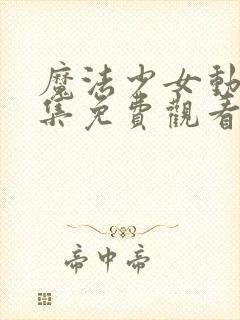 魔法少女動
集免費觀看
帝中帝